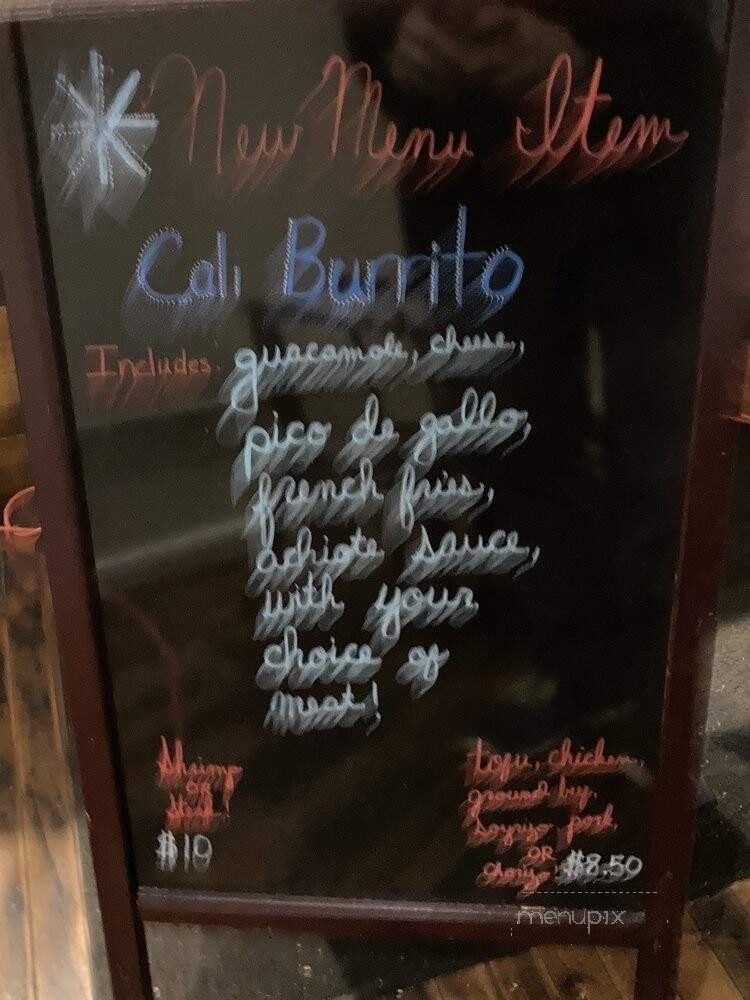 New Menu Item
Cali Burrito
Includes. guacamole, cheese,
pico de gallo,
french fries,
achiote sauce,
with your
choice of
meat!
Shrimp
OR
$10
tofu, chicken,
ground
soyrizo, pork,
OR
$8.50
menupix